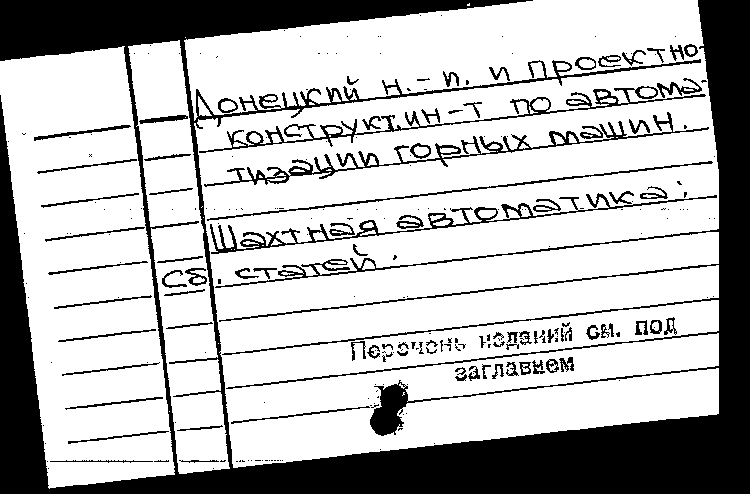 Донецкий н.-п. и проектно-
конструкт. ин-т по автома-
тизации горных машин.
Шахтная автоматика:
Сб. статей.
Перечень изданий см. под
заглавием